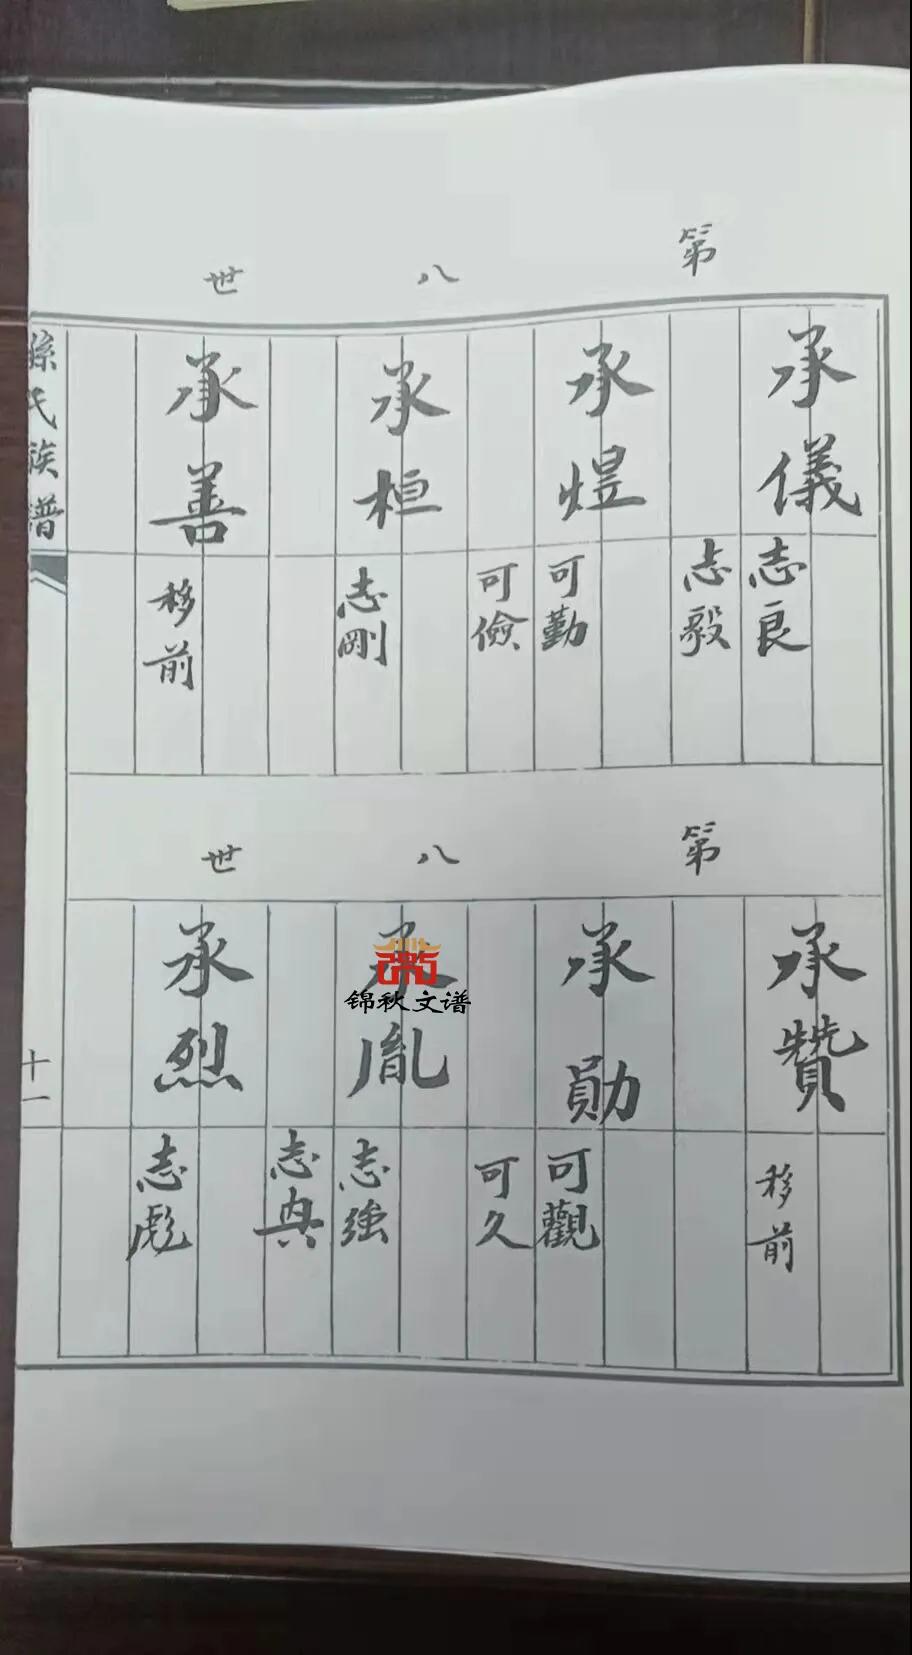 第八世
承儀
志良
志毅
承煜
可勤
可儉
承桓
志剛
承善
移前
第八世
承贊
移前
承勛
可觀
可久
承胤
志強
志典
承烈
志彪
孫氏族譜
十一
锦秋文谱